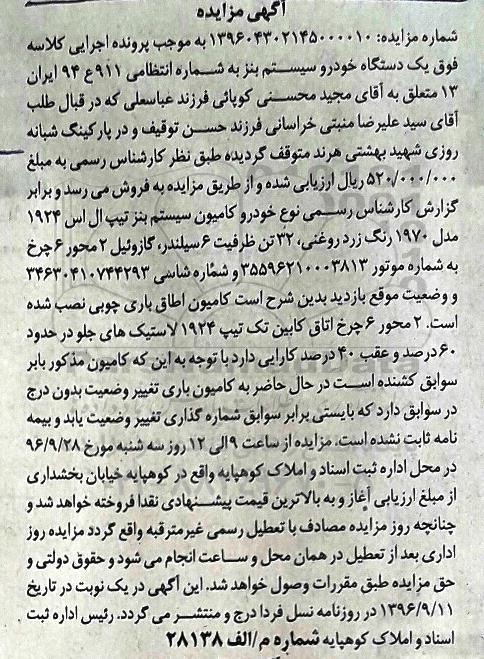 آگهی مزایده
شماره مزایده: ۱۳۹۶۰۴۳۰۲۱۴۵۰۰۰۰۱۰ به موجب پرونده اجرایی کلاسه
فوق یک دستگاه خودرو سیستم بنز به شماره انتظامی ۹۱۱ع ۹۴ ایران
۱۳ متعلق به آقای مجید محسنی کوپائی فرزند عباسعلی که در قبال طلب
آقای سید علیرضا منبتی خراسانی فرزند حسن توقیف و در پارکینگ شبانه
روزی شهید بهشتی هرند متوقف گردیده طبق نظر کارشناس رسمی به مبلغ
۵۲۰/۰۰۰/۰۰۰ ریال ارزیابی شده و از طریق مزایده به فروش می رسد و برابر
گزارش کارشناس رسمی نوع خودرو کامیون سیستم بنز تیپ ال اس ۱۹۲۴
مدل ۱۹۷۰ رنگ زرد روغنی، ۳۲ تن ظرفیت ۶ سیلندر، گازوئیل ۲ محور ۶ چرخ
به شماره موتور ۳۵۵۹۶۲۱۰۰۰۳۸۱۳ و شماره شاسی ۳۴۶۳۰۴۱۰۷۴۴۲۹۳
و وضعیت موقع بازدید بدین شرح است کامیون اطاق باری چوبی نصب شده
است. ۲ محور ۶ چرخ اتاق کابین تک تیپ ۱۹۲۴ لاستیک های جلو در حدود
۶۰ درصد و عقب ۴۰ درصد کارایی دارد با توجه به این که کامیون مذکور بابر
سوابق کشنده است در حال حاضر به کامیون باری تغییر وضعیت بدون درج
در سوابق دارد که بایستی برابر سوابق شماره گذاری تغییر وضعیت یابد و بیمه
نامه ثابت نشده است. مزایده از ساعت ۹ الی ۱۲ روز سه شنبه مورخ ۹۶/۹/۲۸
در محل اداره ثبت اسناد و املاک کوهپایه واقع در کوهپایه خیابان بخشداری
از مبلغ ارزیابی آغاز و به بالاترین قیمت پیشنهادی نقدا فروخته خواهد شد و
چنانچه روز مزایده مصادف با تعطیل رسمی غیرمترقبه واقع گردد مزایده روز
اداری بعد از تعطیل در همان محل و ساعت انجام می شود و حقوق دولتی و
حق مزایده طبق مقررات وصول خواهد شد. این آگهی در یک نوبت در تاریخ
۱۳۹۶/۹/۱۱ در روزنامه نسل فردا درج و منتشر می گردد. رئیس اداره ثبت
اسناد و املاک کوهپایه شماره م/الف ۲۸۱۳۸